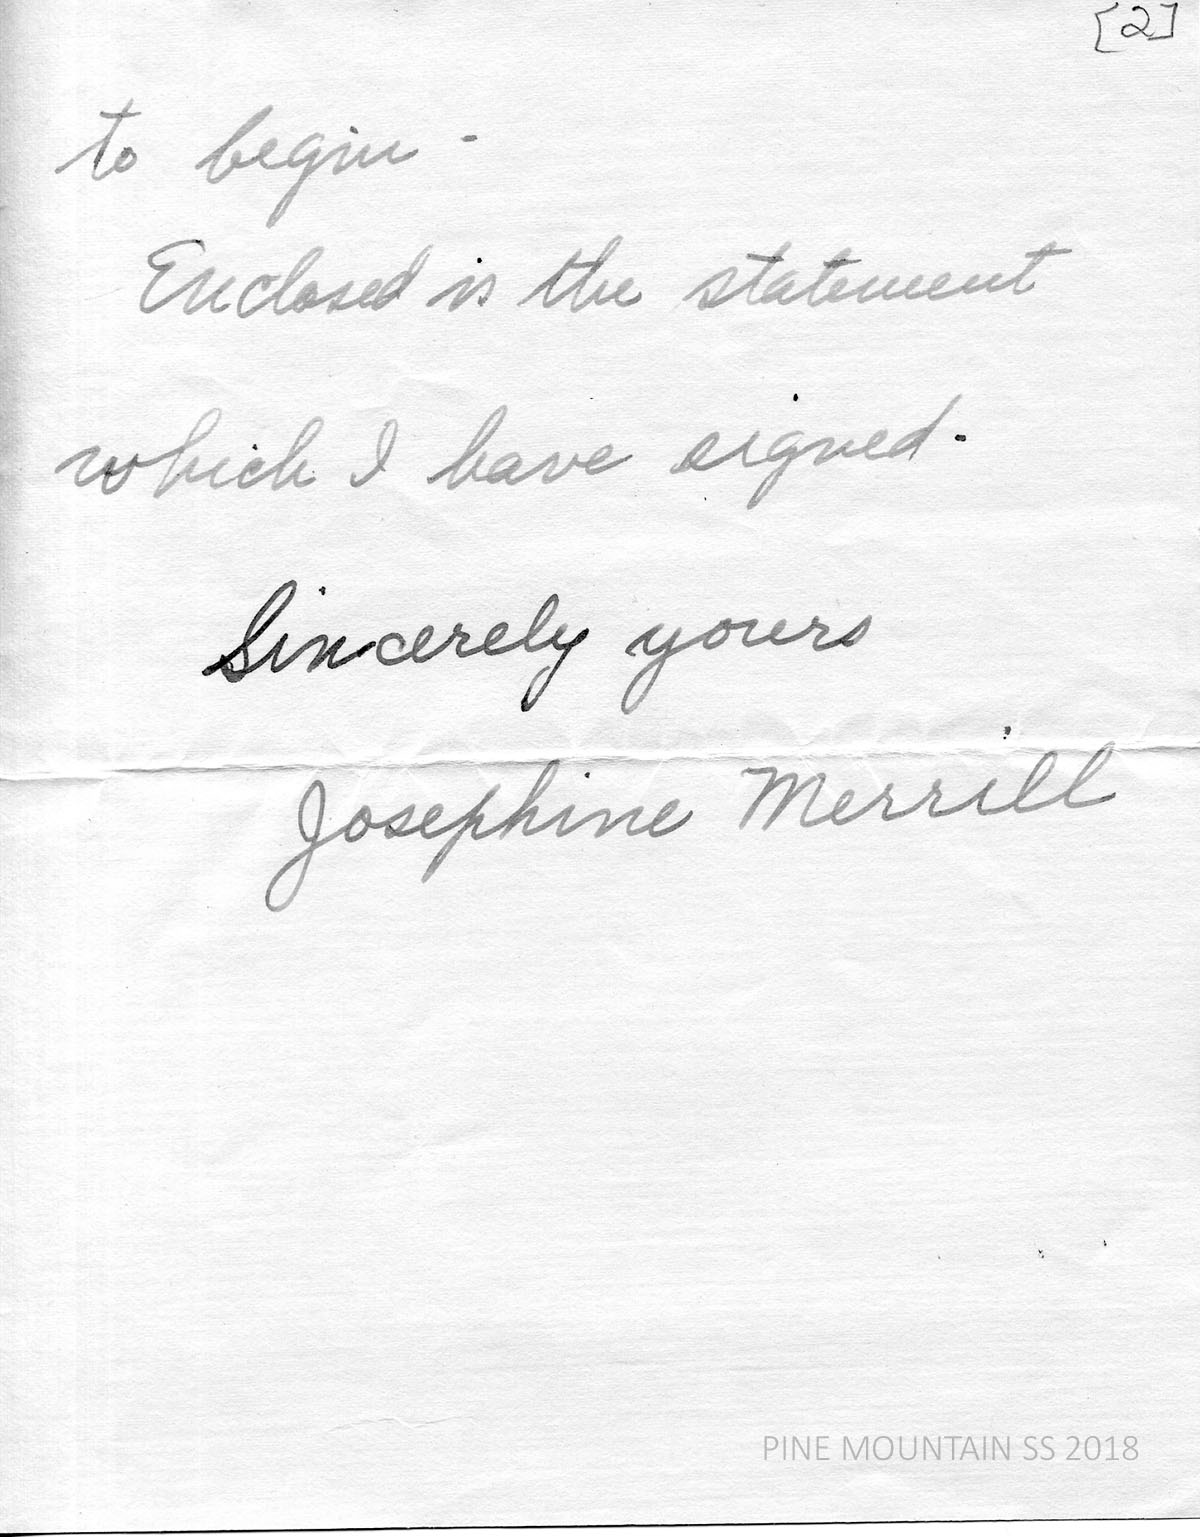 [2]
to begin -
Enclosed is the statement
which I have signed.
Sincerely yours
Josephine Merrill
PINE MOUNTAIN SS 2018